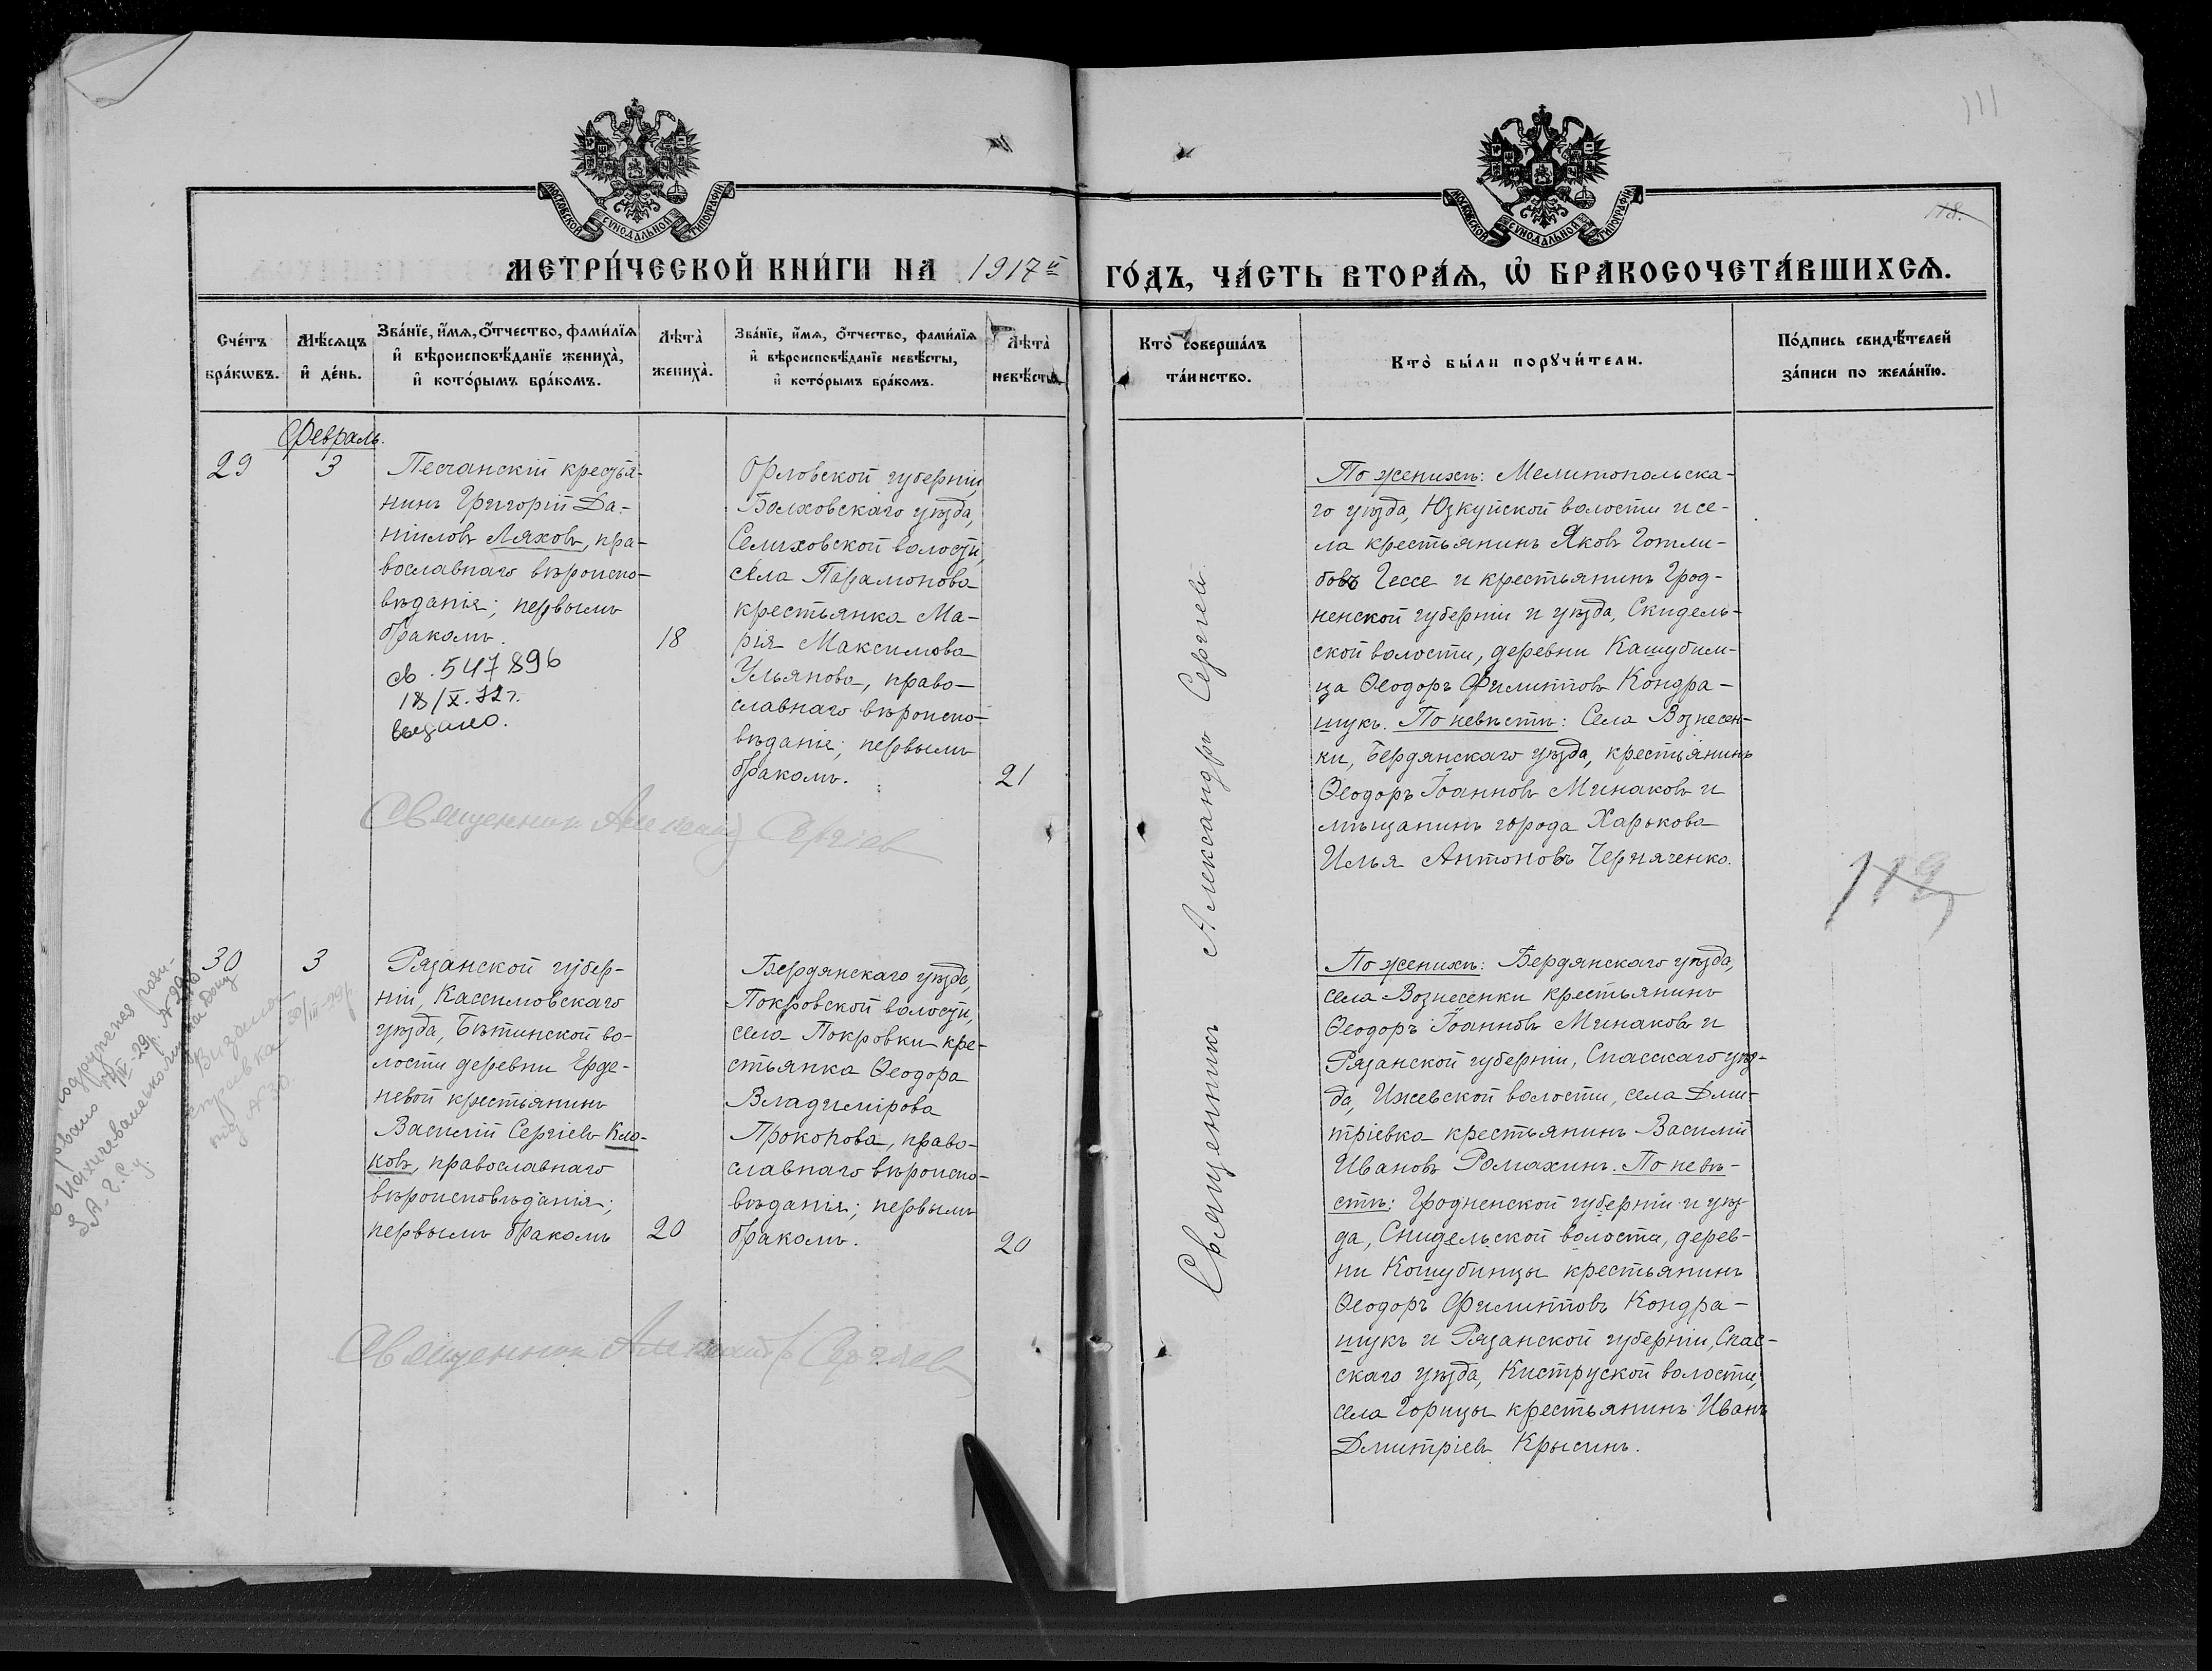 111
118.
МОСКОВСКОЙ СѴНОДАЛЬНОЙ ТИПОГРАФІИ
МОСКОВСКОЙ СѴНОДАЛЬНОЙ ТИПОГРАФІИ
МЕТРИ́ЧЕСКОЙ КНИ́ГИ НА 1917й
ГО́ДЪ, ЧА́СТЬ ВТОРА́Ѧ, Ѽ БРАКОСОЧЕТА́ВШИХСѦ.
Сче́тъ бра́кѡвъ.
Мѣ́сѧцъ и҆ де́нь.
Зва́нїе, и҆́мѧ, ѻ҆́тчество, фами́лїѧ
и҆ вѣроисповѣ́данїе жениха̀,
и҆ кото́рымъ бра́комъ.
Лѣта̀ жениха̀.
Зва́нїе, и҆́мѧ, ѻ҆́тчество, фами́лїѧ
и҆ вѣроисповѣ́данїе невѣ́сты,
и҆ кото́рымъ бра́комъ.
Лѣта̀ невѣ́сты.
Кто̀ соверша́лъ
та́инство.
Кто̀ бы́ли порꙋчи́тели.
По́дпись свидѣ́телей
за́писи по жела́нїю.
Февраль.
29
3
Песчанскій крестья-
нинъ Григорій Да-
ніиловъ Ляховъ, пра-
вославнаго вѣроиспо-
вѣданія; первымъ
бракомъ.
18
св. 547896
18/X.72г.
выдано.
Орловской губерніи,
Болховскаго уѣзда,
Селиховской волости,
села Парамонова
крестьянка Ма-
рія Максимова
Ульянова, право-
славнаго вѣроиспо-
вѣданія; первымъ
бракомъ.
21
Священник Александр Сергіев
Священникъ Александръ Сергіевъ.
По женихѣ: Мелитопольска-
го уѣзда, Юзкуйской волости и се-
ла крестьянинъ Яковъ Готли-
бовъ Гессе и крестьянинъ Грод-
ненской губерніи и уѣзда, Скидель-
ской волости, деревни Кашубин-
ца Ѳеодоръ Филипповъ Кондра-
шукъ. По невѣстѣ: Села Вознесен-
ки, Бердянскаго уѣзда, крестьянинъ
Ѳеодоръ Іоанновъ Минаковъ и
мѣщанинъ города Харькова
Илья Антоновъ Черняченко.
30
3
Рязанской губер-
ніи, Касимовскаго
уѣзда, Бѣтинской во-
лости деревни Ерде-
невой крестьянинъ
Василій Сергіевъ Кла-
ковъ, православнаго
вѣроисповѣданія;
первымъ бракомъ
20
Бердянскаго уѣзда,
Покровской волости,
села Покровки кре-
стьянка Ѳеодора
Владимірова
Прокопова, право-
славнаго вѣроиспо-
вѣданія; первымъ
бракомъ.
20
Священник Александр Сергіев
По женихѣ: Бердянскаго уѣзда,
села Вознесенки крестьянинъ
Ѳеодоръ Іоанновъ Минаковъ и
Рязанской губерніи, Спасскаго уѣз-
да, Ижевской волости, села Дми-
тріевка крестьянинъ Василій
Ивановъ Ромахинъ. По невѣ-
стѣ: Гродненской губерніи и уѣз-
да, Скидельской волости, дерев-
ни Кошубинцы крестьянинъ
Ѳеодоръ Филипповъ Кондра-
шукъ и Рязанской губерніи, Спас-
скаго уѣзда, Киструской волости,
села Горицы крестьянинъ Иванъ
Дмитріевъ Крысинъ.